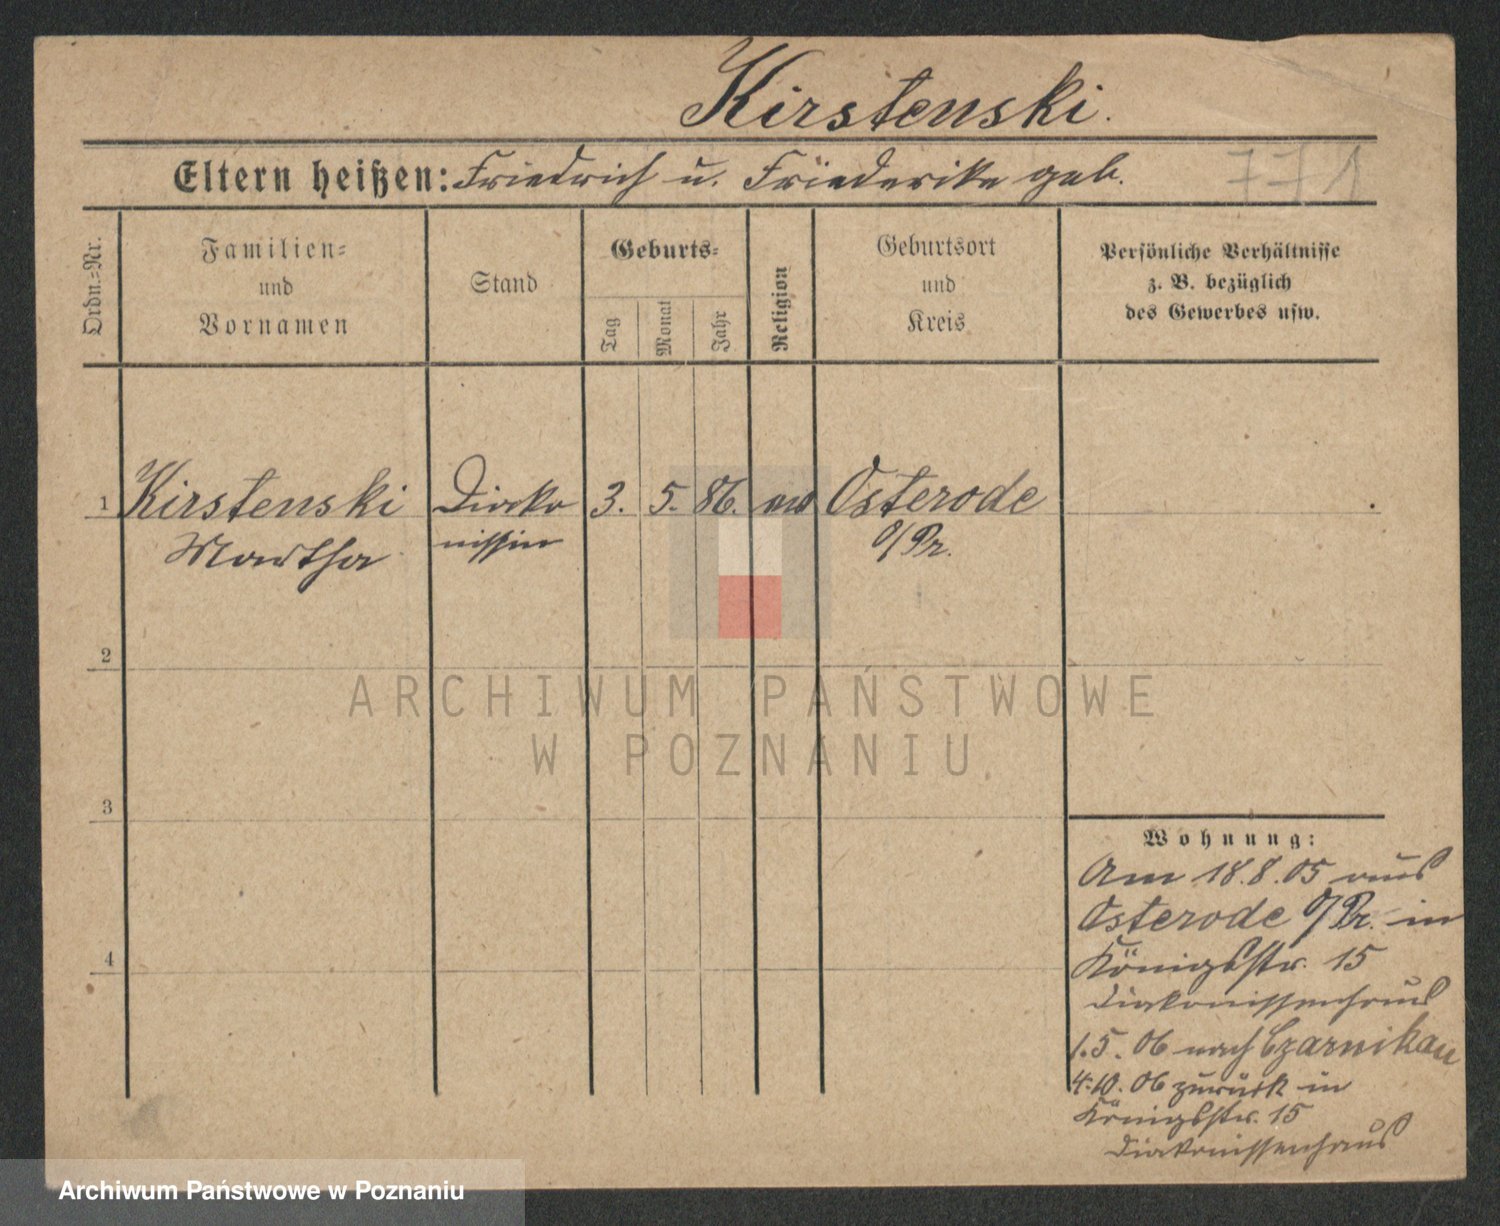 Kirstenski.
Eltern heißen: Friedrich u. Friederike geb.
771
Ordn.=Nr.
Familien=
und
Vornamen
Stand
Geburts=
Tag
Monat
Jahr
Religion
Geburtsort
und
Kreis
Persönliche Verhältnisse
z. B. bezüglich
des Gewerbes usw.
1 Kirstenski Diako 3. 5. 86. ev Osterode
Martha nissin O/Pr.
2
3
4
Wohnung:
Am 18.8.05 aus
Osterode O/Pr. in
Königsstr. 15
Diakonissenhaus
1.5.06 nach Czarnikau
4.10.06 zurück in
Königsstr. 15
Diakonissenhaus
ARCHIWUM PAŃSTWOWE
W POZNANIU
Archiwum Państwowe w Poznaniu